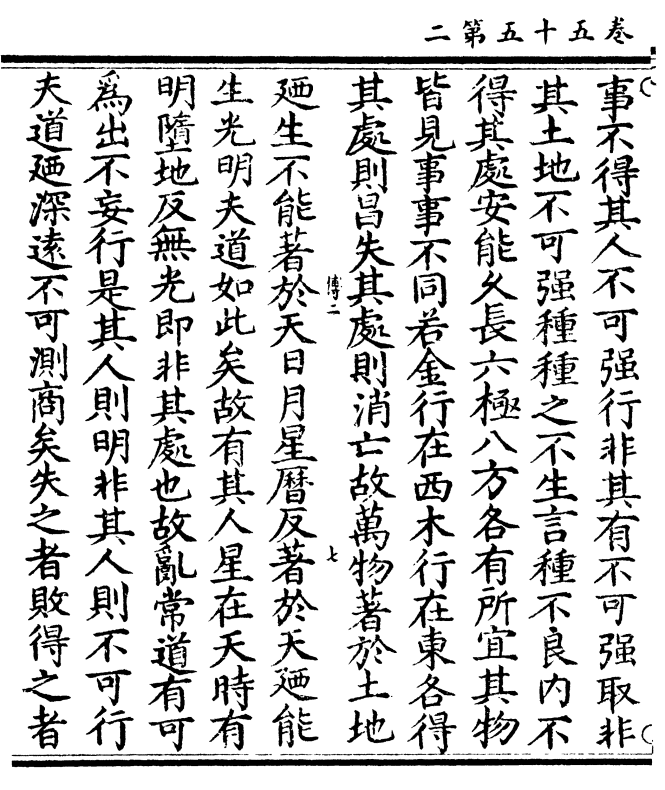 卷五十五第二
事不得其人不可强行非其有不可强取非
其土地不可强種種之不生言種不良内不
得其處安能久長六極八方各有所宜其物
皆見事事不同若金行在西木行在東各得
其處則昌失其處則消亡故萬物著於土地
傅二
七
廼生不能著於天日月星曆反著於天廼能
生光明夫道如此矣故有其人星在天時有
明墮地反無光即非其處也故亂常道有可
爲出不妄行是其人則明非其人則不可行
夫道廼深遠不可測商矣失之者敗得之者